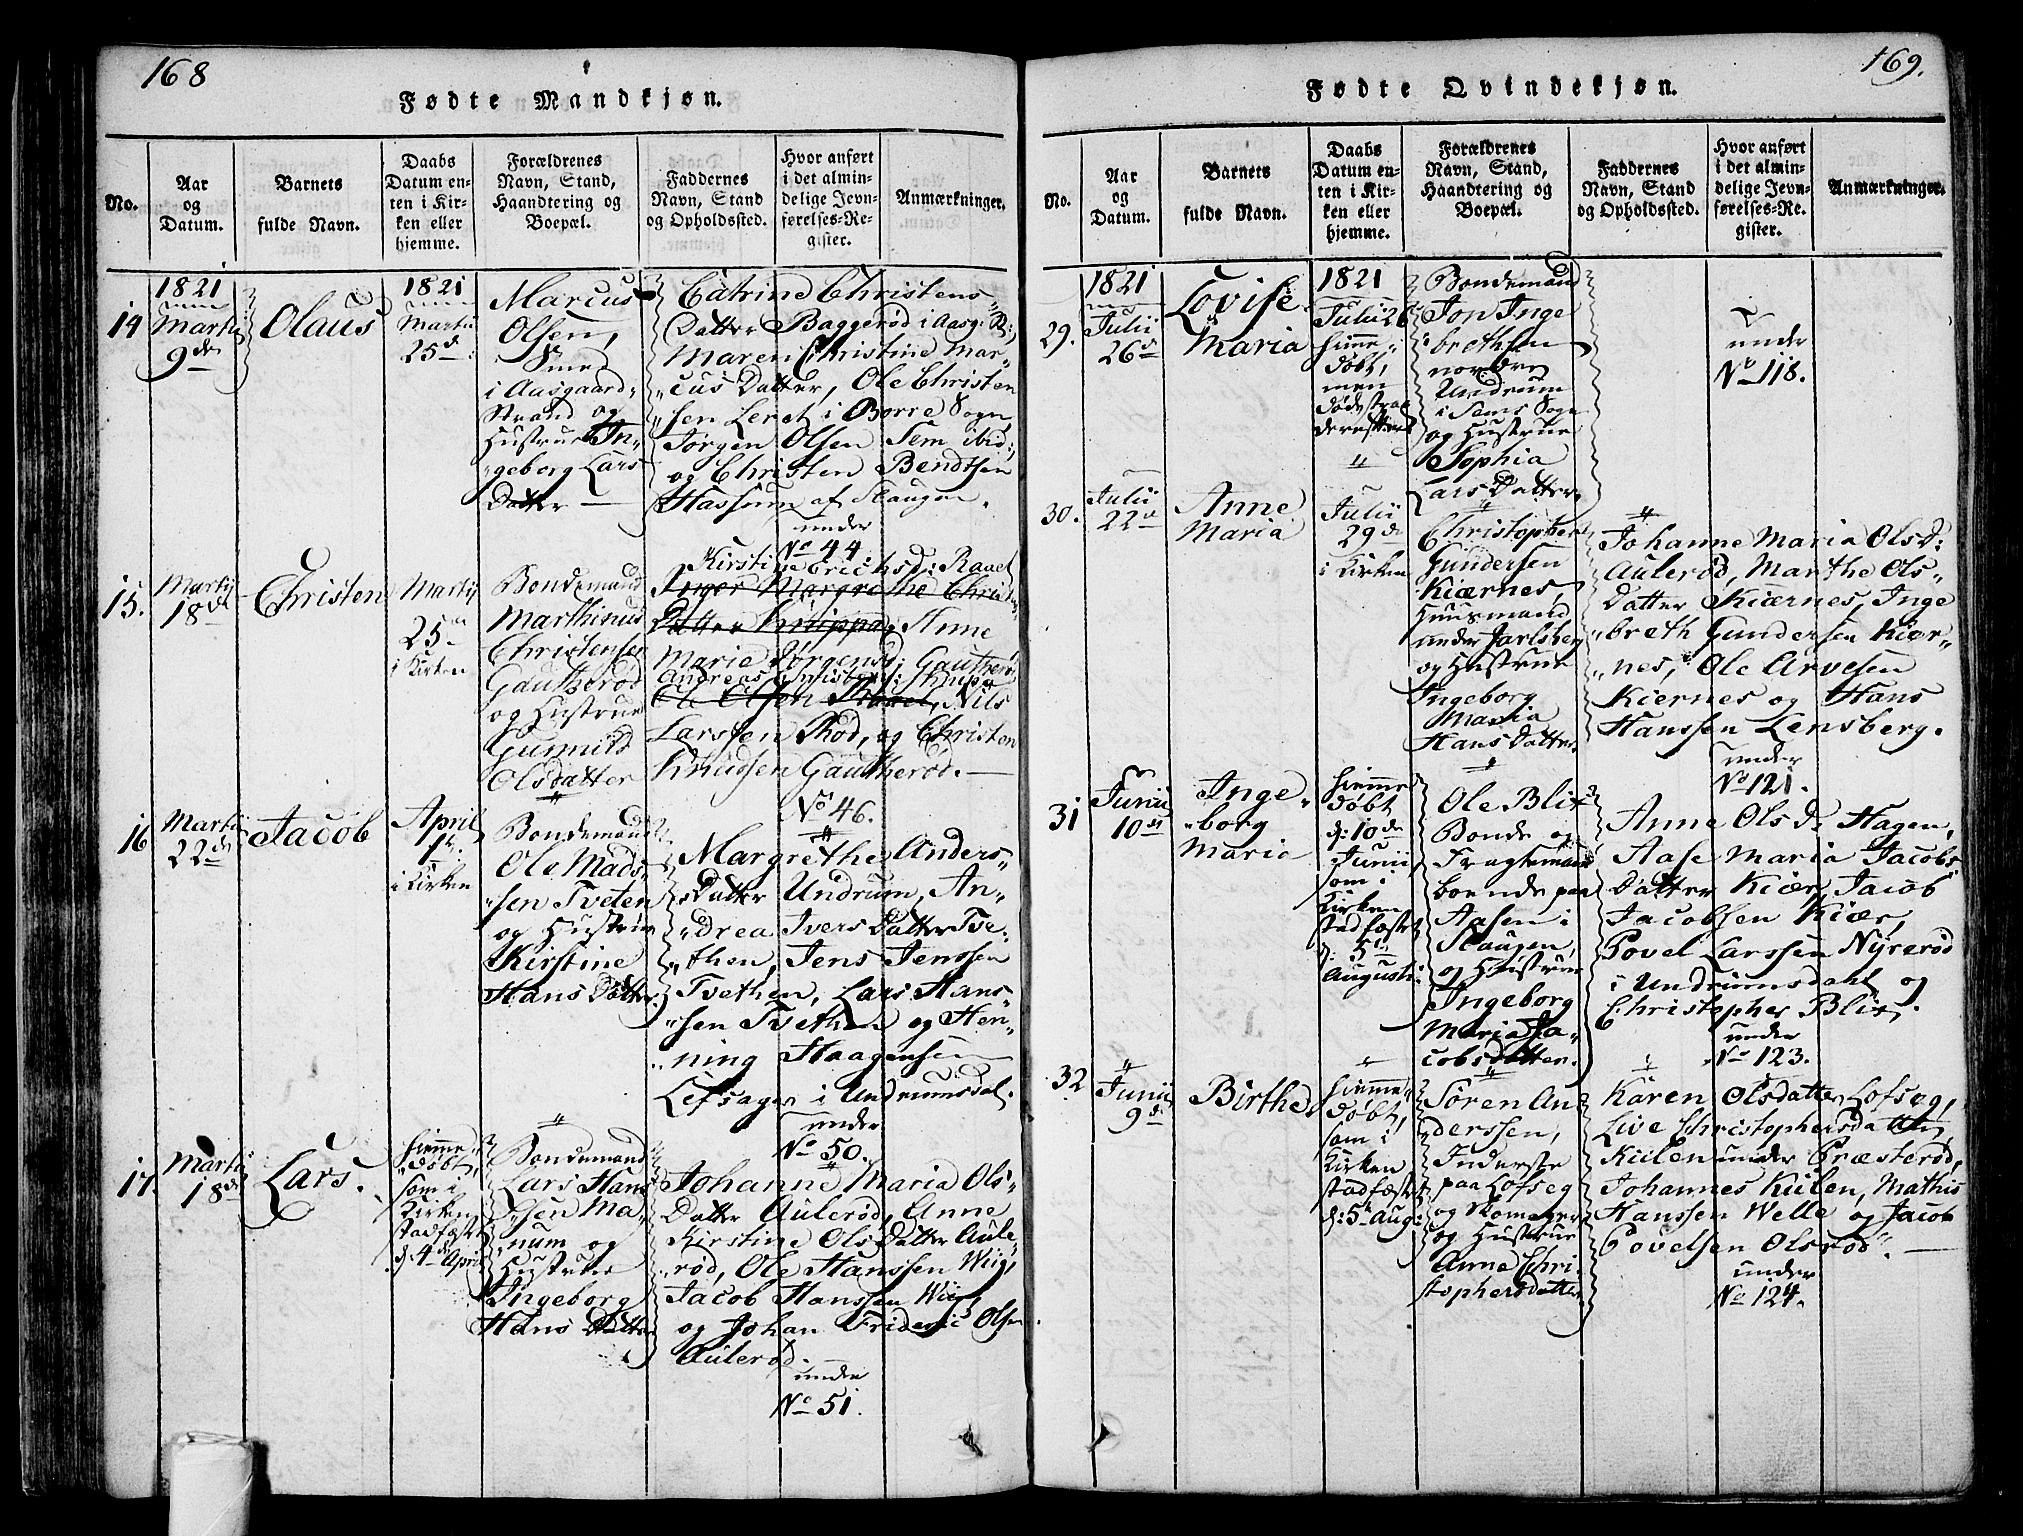 168
Fødte Mandkjøn.
No.
Aar
og
Datum.
Barnets
fulde Navn.
Daabs
Datum en-
ten i Kir-
ken eller
hjemme.
Forældrenes
Navn, Stand,
Haandtering og
Boepæl.
Faddernes
Navn, Stand
og Opholdssted.
Hvor anført
i det almin-
delige Jevn-
førelses-Re-
gister.
Anmærkninger.
14
1821
Martii
9de
Olaus
1821
Martii
25de
Marcus
Olsen,
i Aasgaard-
Strand og
Hustrue In-
geborg Lars
Datter —
Catrine Christens
Datter Baggerød i Aasg: St:,
Maren Christine Mar-
cus Datter, Ole Christen
sen Leret i Borre Sogn,
Jørgen Olsen Sem ibid:,
og Christen Bendtsen
Hassum af Slaugen.
under
No 44.
15.
Martii
18de
Christen
Martii
25de
i Kirken
Bondemand
Marthinus
Christensen
Gautherød
og Hustrue
Gunnild
Olsdatter
Kirstine Erichsd: Raael
Inger Margrethe Christens
Datter Knippa, Anne
Marie Jørgensd: Gautherød
Andreas
Ole Olsen Raael, Nils
Larssen Rød, og Christen
Knudsen Gautherød. —
No 46.
16
Martii
22de
Jacob
April
1ste
i Kirken
Bondemand
Ole Mads-
sen Tveten
og Hustrue
Kirstine
Hans Datter.
Margrethe Anders-
Datter Undrum, An-
drea Ivers Datter Tve-
then, Jens Jenssen
Tvethen, Lars Hans-
sen Tvethen og Hen-
ning Haagensen
Lefsager i Undrumsdal.
under
No 50.
17.
Martii
18de
Lars.
Hjemme-
døbt,
som i
Kirken
stadfæst
d: 4de April
Bondemand
Lars Hans
sen Ma-
num og
Hustrue
Ingeborg
Hans Datter
Johanne Maria Ols-
Datter Aulerød, Anne
Kirstine Ols Datter Aule-
rød, Ole Hanssen Wiig,
Jacob Hanssen Wiig,
og Johan Frideric Olsen
Aulerød.
under
No 51.
169.
Fødte Qvindekjøn.
No.
Aar
og
Datum.
Barnets
fulde Navn.
Daabs
Datum en-
ten i Kir-
ken eller
hjemme.
Forældrenes
Navn, Stand,
Haandtering og
Boepæl.
Faddernes
Navn, Stand
og Opholdssted.
Hvor anført
i det almin-
delige Jevn-
førelses-Re-
gister.
Anmærkninger.
29.
1821
Julii
26de
Lovise
Maria
1821
Julii 26
hjemme-
døbt,
men
døde strax
derefter
Bondemand
Jon Inge
brethsen
nordre
Undrum
i Sems Sogn
og Hustrue
Sophia
Lars Datter
under
No 118.
30.
Julii
22de
Anne
Maria
Julii
29de
i Kirken
Christopher
Gundersen
Kiærnes,
Huusmand
under Jarlsberg
og Hustrue
Ingeborg
Maria
Hans Datter
Johanne Maria Olsd:
Aulerød, Marthe Ols-
Datter Kiærnes, Inge
breth Gundersen Kiær-
nes, Ole Arvesen
Kiernes og Hans
Hanssen Lensberg.
under
No 121.
31
Junii
10de
Inge-
borg
Maria
hjemme
døbt
d: 10de
Junii
som i
Kirken
stadfæst
d: 5te
Augusti
Ole Blix
Bonde og
Fragtemand
boende paa
Aasen i
Slaugen,
og Hustrue
Ingeborg
Maria Ja-
cobsdatter.
Anne Olsd: Hagen,
Aase Maria Jacobs
Datter Kiær, Jacob
Jacobsen Kiær,
Povel Larssen Nyrerød
i Undrumsdahl og
Christopher Blix.
under
No 123.
32
Junii
9de
Birthe
hjemme-
døbt,
som i
Kirken
stadfæst
d: 5te Aug:
Søren An
derssen,
Inderste
paa Lofseg
og Skomager
og Hustrue
Anne Chri-
stophersdatter
Karen Olsdatter Lofseg,
Live Christophersdatter,
Kiilen under Præsterød,
Johannes Kiilen, Mathis
Hanssen Welle og Jacob
Povelsen Olsrød. —
under
No 124.